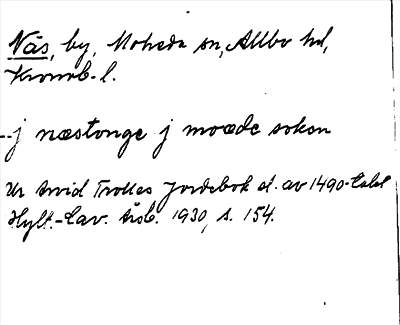 Näs, by, Moheda sn, Allbo hd,
Kronob. l.
--j næstonge j moæde sokon
Ur Arvid Trolles Jordebok d. av 1490-talet
Hylt.-Cav. årsb. 1930, s. 154.